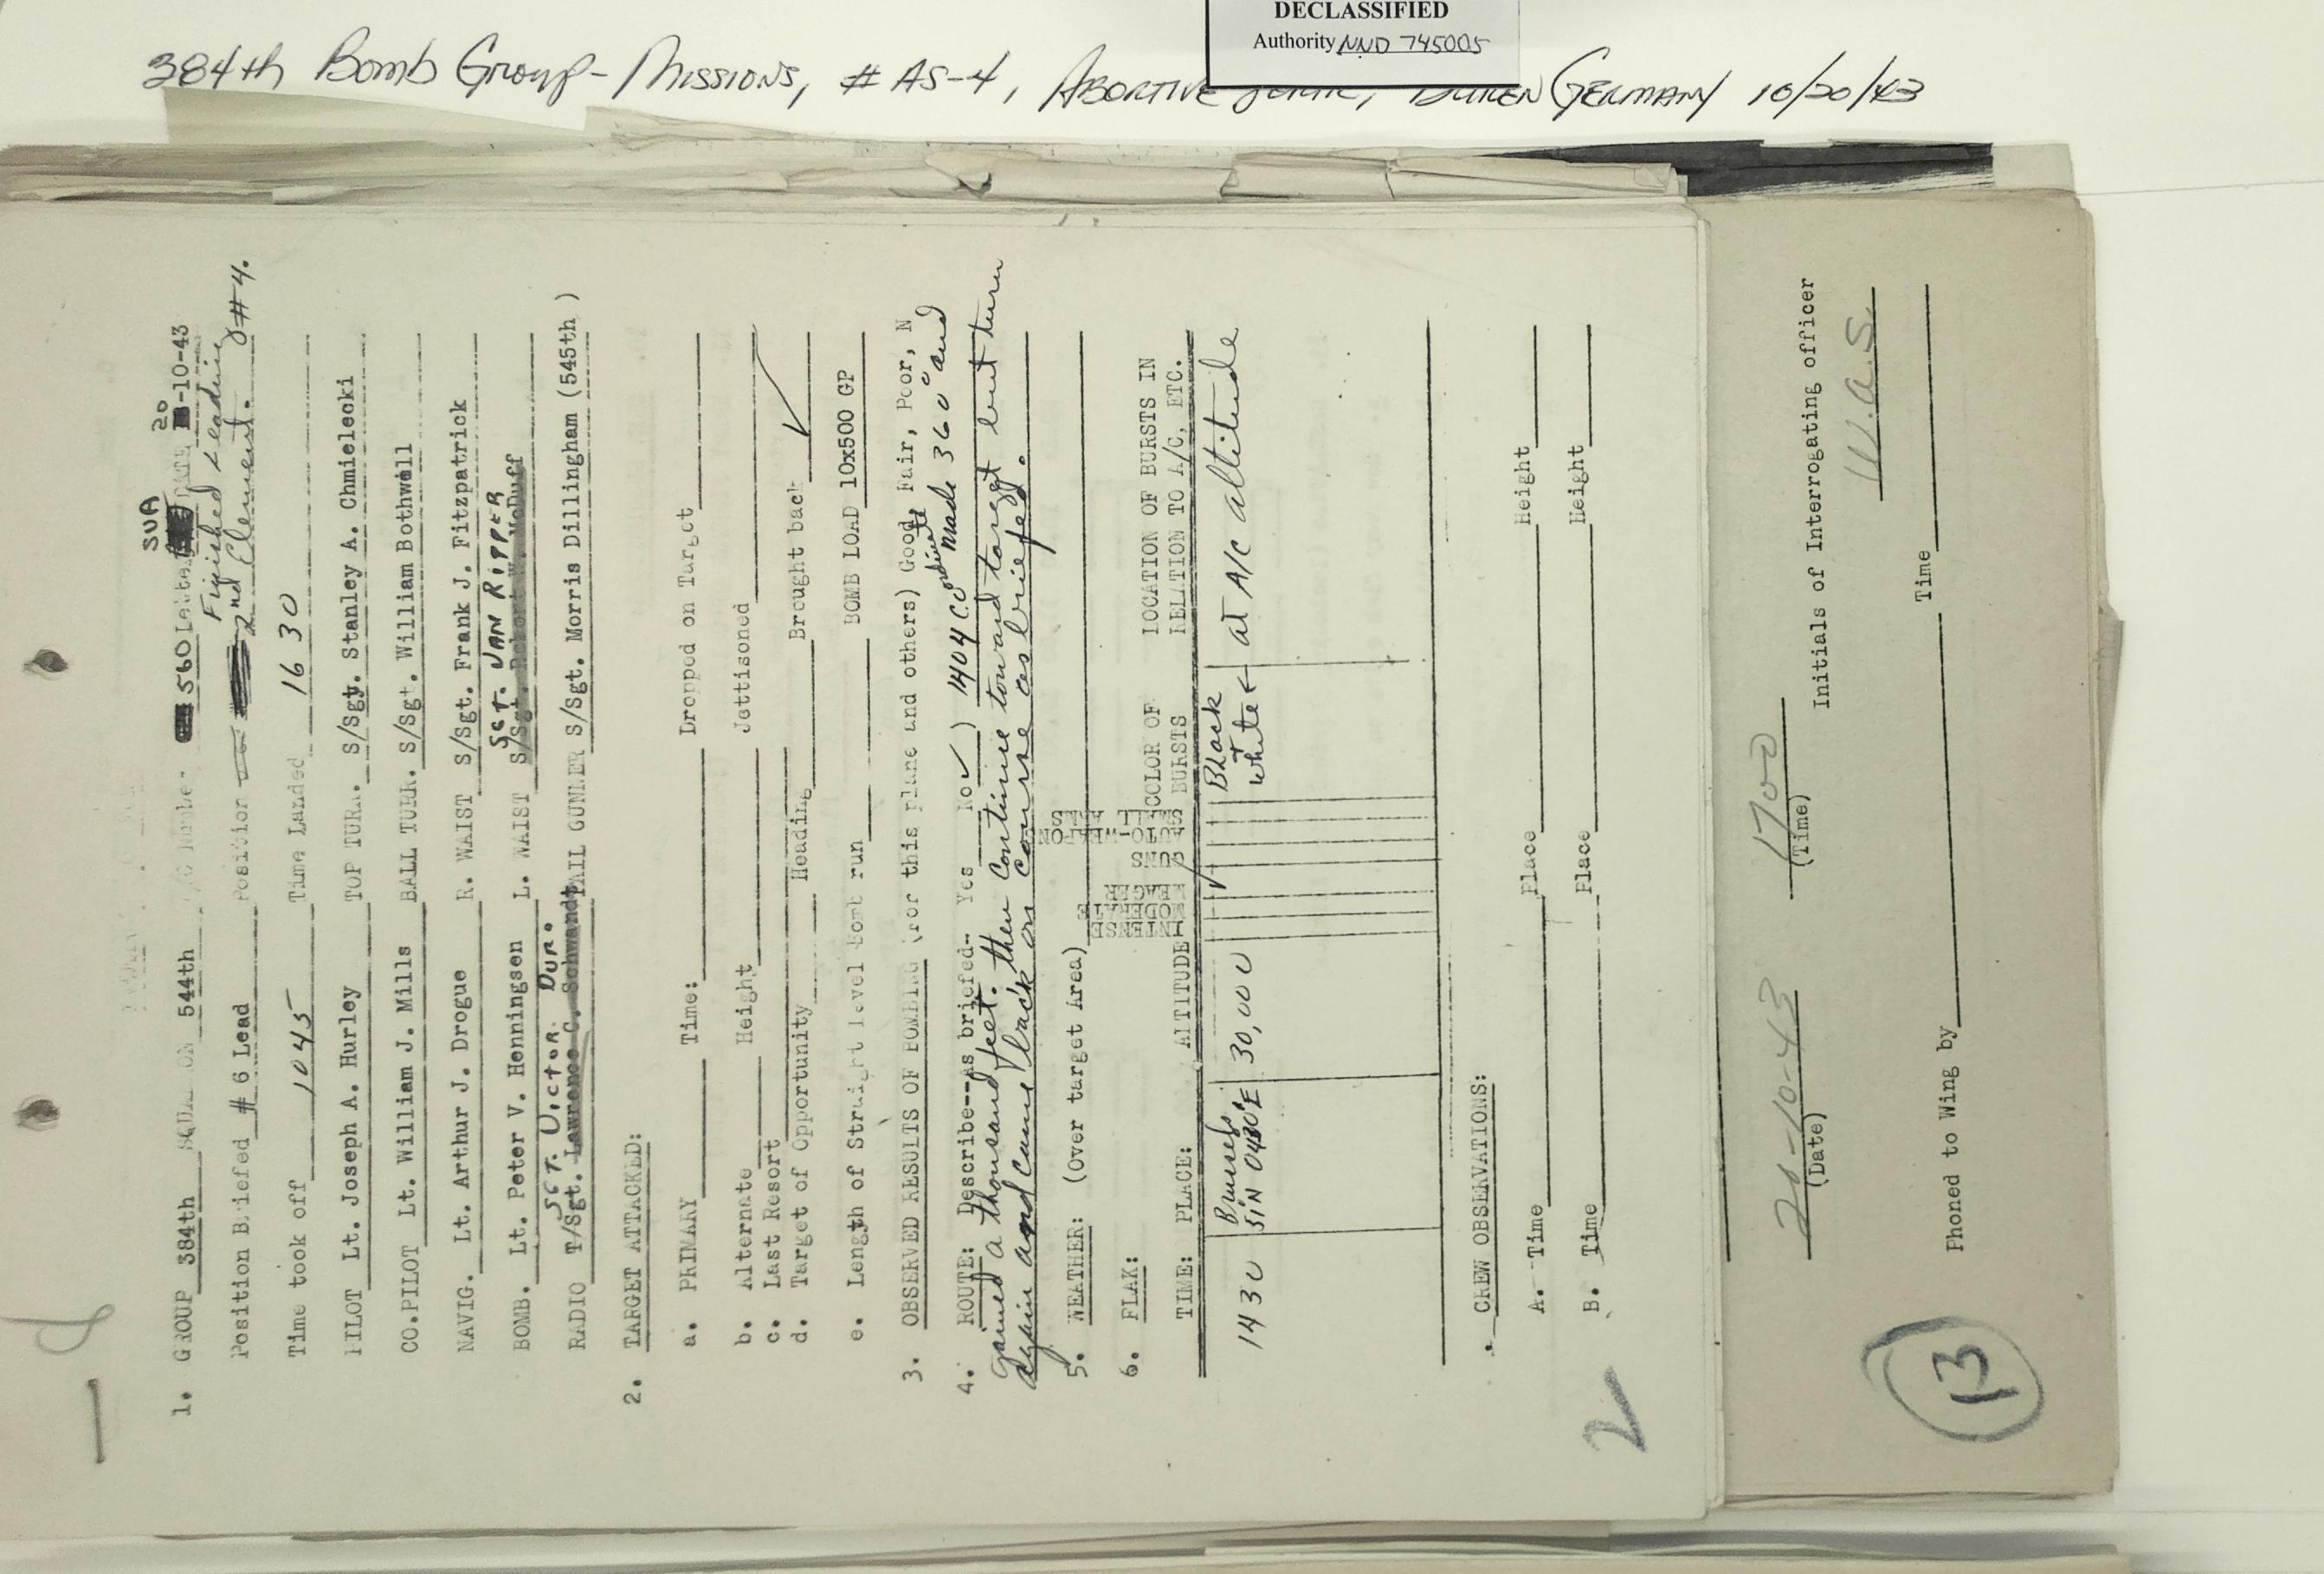 DECLASSIFIED
Authority NND 745005
384th Bomb Group - Missions, # AS-4, Abortive Germany 10/20/43
1. GROUP 384th SQUADRON 544th A/C Number 560 Letter SUA DATE 20-10-43
Position Briefed # 6 Lead Position Finished Leading
2nd Element. #4.
Time took off 1045 Time Landed 1630
PILOT Lt. Joseph A. Hurley TOP TURR. S/Sgt. Stanley A. Chmielecki
CO.PILOT Lt. William J. Mills BALL TURR. S/Sgt. William Bothwell
NAVIG. Lt. Arthur J. Drogue R. WAIST S/Sgt. Frank J. Fitzpatrick
SGT. JAN RITPER
BOMB. Lt. Peter V. Henningsen L. WAIST S/Sgt. Robert W. McDuff
SGT. VICTOR DUR.
RADIO T/Sgt. Lawrence C. Schwandt TAIL GUNNER S/Sgt. Morris Dillingham (545th)
2. TARGET ATTACKED:
a. PRIMARY Time: Dropped on Target
b. Alternate Height Jettisoned
c. Last Resort
d. Target of Opportunity Heading Brought back
e. Length of Straight level bomb run BOMB LOAD 10x500 GP
3. OBSERVED RESULTS OF BOMBING (For this plane and others) Good, Fair, Poor, N
4. ROUTE: Describe--as briefed-- Yes No ✓) 1404 Coordinate made 360° and
gained a thousand feet. then continue toward target but turn
again and came back on course as briefed.
5. WEATHER: (Over target Area)
6. FLAK:
TIME: PLACE: ALTITUDE INTENSE MODERATE MEAGER GUNS AUTO-WEAPON SMALL ARMS COLOR OF BURSTS LOCATION OF BURSTS IN RELATION TO A/C, ETC.
1430 Brussels 51N 0430E 30,000 ✓ Black + white at A/C altitude
CREW OBSERVATIONS:
A. Time Place Height
B. Time Place Height
2
20-10-43 1700 W.A.S.
(Date) (Time) Initials of Interrogating officer
Phoned to Wing by Time
13